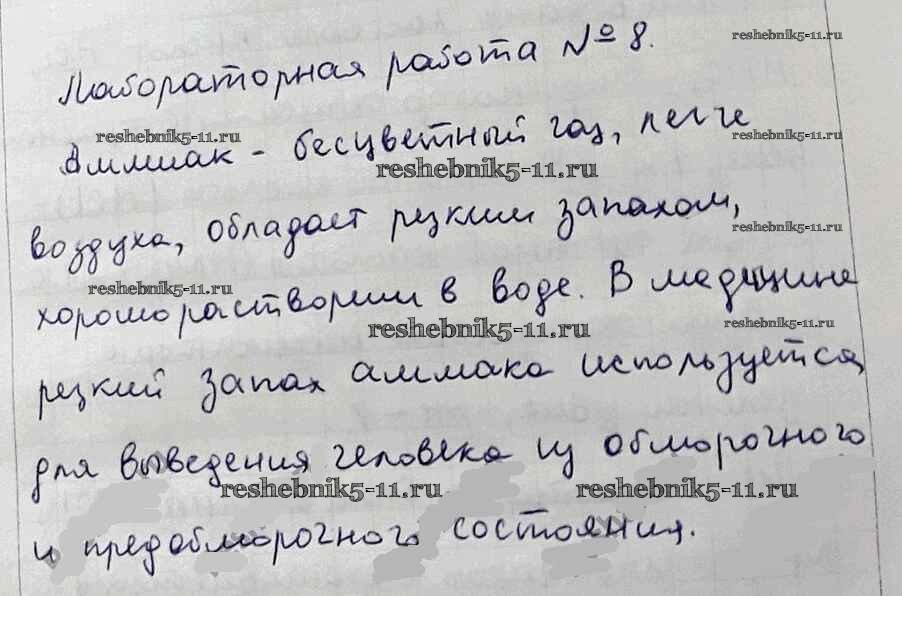 Лабораторная работа №8.
reshebnik5-11.ru
reshebnik5-11.ru
Аммиак - бесцветный газ, легче
reshebnik5-11.ru
воздуха, обладает резким запахом,
reshebnik5-11.ru
reshebnik5-11.ru
хорошо растворим в воде. В медицине
reshebnik5-11.ru
reshebnik5-11.ru
резкий запах аммака используется
для выведения человека из обморочного
reshebnik5-11.ru
reshebnik5-11.ru
и предобморочного состояния.